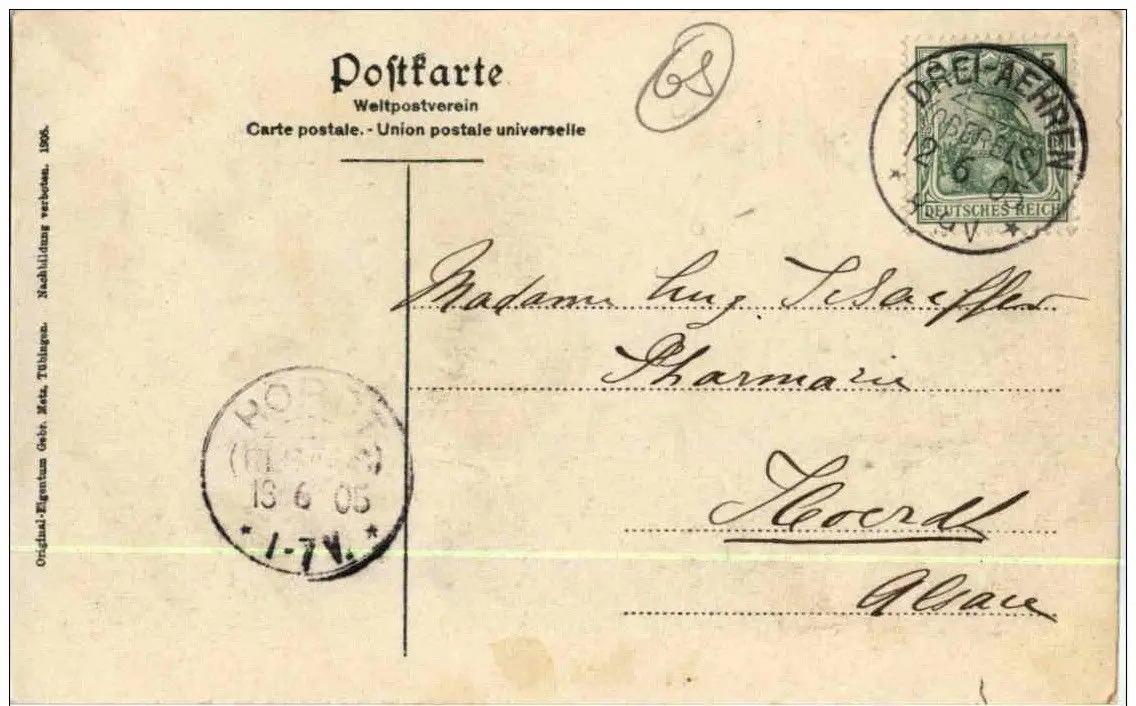 Postkarte
Weltpostverein
Carte postale. - Union postale universelle
68
5
DREI-AEHREN
(OBERELS.)
12 6 05
V
DEUTSCHES REICH
Madame Eug. Schaeffer
Pharmacie
Hoerdt
Alsace
HOERDT
13 6 05
* 1-7 V. *
Original-Eigentum Gebr. Metz, Tübingen. Nachbildung verboten. 1905.